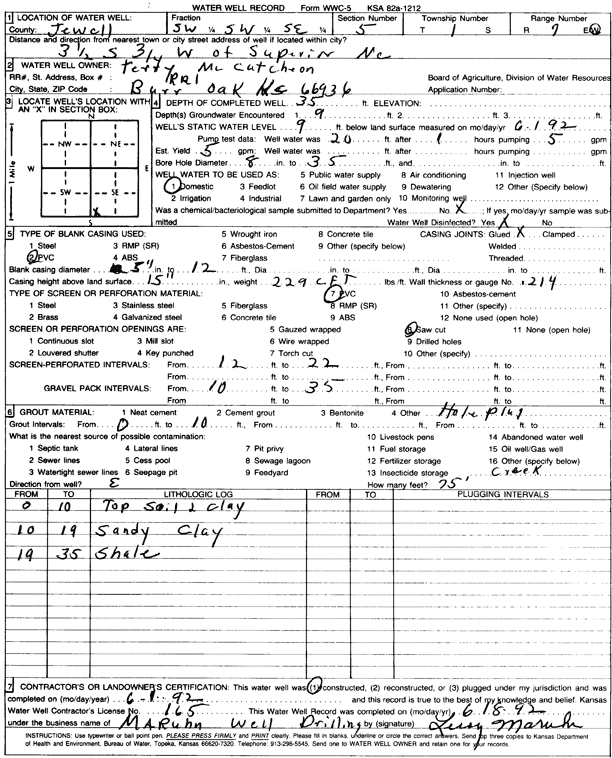 WATER WELL RECORD Form WWC-5 KSA 82a-1212
1 LOCATION OF WATER WELL: Fraction Section Number Township Number Range Number
County: Jewell SW ¼ SW ¼ SE ¼ 5 T 1 S R 7 E/W
Distance and direction from nearest town or city street address of well if located within city?
3½ S 3¼ W of Superior Ne
2 WATER WELL OWNER: Terry McCutcheon
RR#, St. Address, Box # : RR1 Board of Agriculture, Division of Water Resources
City, State, ZIP Code : Burr Oak Ks 66936 Application Number:
3 LOCATE WELL'S LOCATION WITH AN "X" IN SECTION BOX:
N
NW NE
W E
SW SE
X
S
1 Mile
4 DEPTH OF COMPLETED WELL 35 ft. ELEVATION:
Depth(s) Groundwater Encountered 1. 9 ft. 2. ft. 3. ft.
WELL'S STATIC WATER LEVEL 9 ft. below land surface measured on mo/day/yr 6-1-92
Pump test data: Well water was 20 ft. after 1 hours pumping 5 gpm
Est. Yield 5 gpm: Well water was ft. after hours pumping gpm
Bore Hole Diameter 8 in. to 35 ft., and in. to ft.
WELL WATER TO BE USED AS: 5 Public water supply 8 Air conditioning 11 Injection well
1 Domestic 3 Feedlot 6 Oil field water supply 9 Dewatering 12 Other (Specify below)
2 Irrigation 4 Industrial 7 Lawn and garden only 10 Monitoring well
Was a chemical/bacteriological sample submitted to Department? Yes No X; If yes, mo/day/yr sample was submitted Water Well Disinfected? Yes X No
5 TYPE OF BLANK CASING USED: 5 Wrought iron 8 Concrete tile CASING JOINTS: Glued X Clamped
1 Steel 3 RMP (SR) 6 Asbestos-Cement 9 Other (specify below) Welded
2 PVC 4 ABS 7 Fiberglass Threaded
Blank casing diameter 5" in. to 12 ft., Dia in. to ft., Dia in. to ft.
Casing height above land surface 15" in., weight 229 CFT lbs./ft. Wall thickness or gauge No. .214
TYPE OF SCREEN OR PERFORATION MATERIAL: 7 PVC 10 Asbestos-cement
1 Steel 3 Stainless steel 5 Fiberglass 8 RMP (SR) 11 Other (specify)
2 Brass 4 Galvanized steel 6 Concrete tile 9 ABS 12 None used (open hole)
SCREEN OR PERFORATION OPENINGS ARE: 5 Gauzed wrapped 8 Saw cut 11 None (open hole)
1 Continuous slot 3 Mill slot 6 Wire wrapped 9 Drilled holes
2 Louvered shutter 4 Key punched 7 Torch cut 10 Other (specify)
SCREEN-PERFORATED INTERVALS: From 12 ft. to 22 ft., From ft. to ft.
From ft. to ft., From ft. to ft.
GRAVEL PACK INTERVALS: From 10 ft. to 35 ft., From ft. to ft.
From ft. to ft., From ft. to ft.
6 GROUT MATERIAL: 1 Neat cement 2 Cement grout 3 Bentonite 4 Other Hole plug
Grout Intervals: From 0 ft. to 10 ft., From ft. to ft., From ft. to ft.
What is the nearest source of possible contamination: 10 Livestock pens 14 Abandoned water well
1 Septic tank 4 Lateral lines 7 Pit privy 11 Fuel storage 15 Oil well/Gas well
2 Sewer lines 5 Cess pool 8 Sewage lagoon 12 Fertilizer storage 16 Other (specify below)
3 Watertight sewer lines 6 Seepage pit 9 Feedyard 13 Insecticide storage Creek
Direction from well? E How many feet? 75'
FROM TO LITHOLOGIC LOG FROM TO PLUGGING INTERVALS
0 10 Top Soil & clay
10 19 Sandy Clay
19 35 Shale
7 CONTRACTOR'S OR LANDOWNER'S CERTIFICATION: This water well was (1) constructed, (2) reconstructed, or (3) plugged under my jurisdiction and was
completed on (mo/day/year) 6-1-92 and this record is true to the best of my knowledge and belief. Kansas
Water Well Contractor's License No. 165 This Water Well Record was completed on (mo/day/yr) 6-18-92
under the business name of Maruhn Well Drilling by (signature) Maruhn
INSTRUCTIONS: Use typewriter or ball point pen. PLEASE PRESS FIRMLY and PRINT clearly. Please fill in blanks, underline or circle the correct answers. Send top three copies to Kansas Department
of Health and Environment, Bureau of Water, Topeka, Kansas 66620-7320. Telephone: 913-296-5545. Send one to WATER WELL OWNER and retain one for your records.